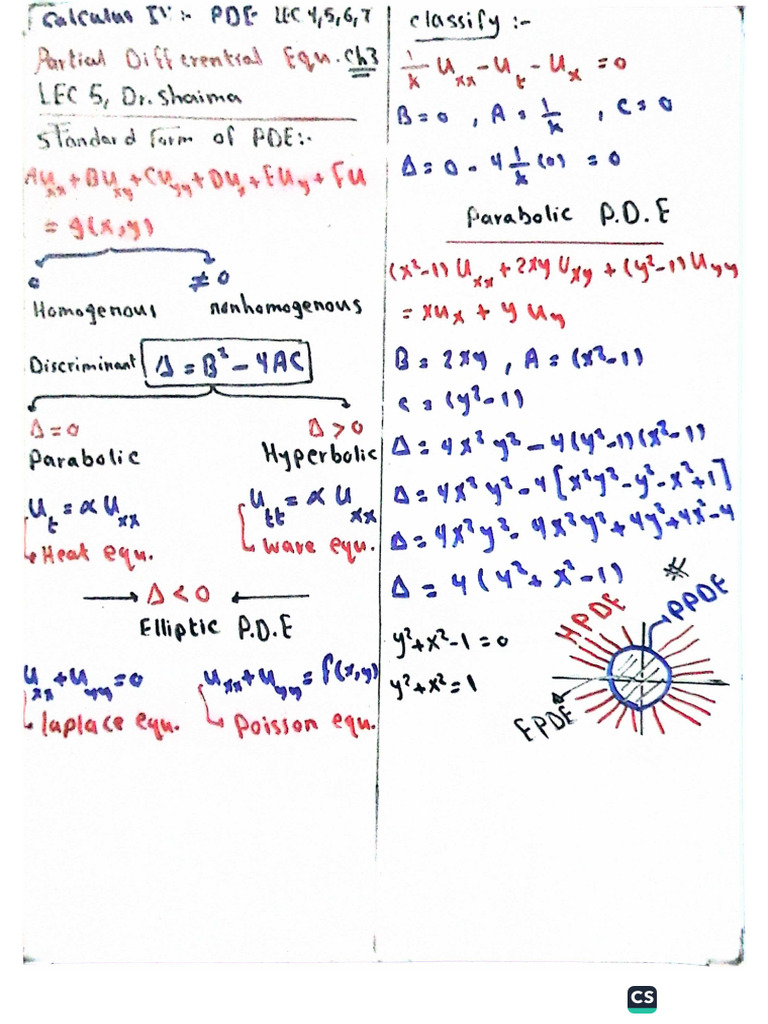 Calculus IV:- PDE LEC 4,5,6,7
Partial Differential Equ. Ch3
LEC 5, Dr. Shaima
Standard form of PDE:-
AU_xx + BU_xy + CU_yy + DU_x + EU_y + FU
= g(x,y)
0 ≠ 0
Homogenous nonhomogenous
Discriminant Δ = B² - 4AC
Δ = 0 Δ > 0
Parabolic Hyperbolic
U_t = α U_xx U_tt = α U_xx
Heat equ. wave equ.
Δ < 0
Elliptic P.D.E
U_xx + U_yy = 0 U_xx + U_yy = f(x,y)
laplace equ. Poisson equ.
classify :-
1/k U_xx - U_t - U_x = 0
B = 0 , A = 1/k , C = 0
Δ = 0 - 4 1/k (0) = 0
Parabolic P.D.E
(x²-1) U_xx + 2xy U_xy + (y²-1) U_yy
= xU_x + y U_y
B = 2xy , A = (x²-1)
C = (y²-1)
Δ = 4x² y² - 4(y²-1)(x²-1)
Δ = 4x² y² - 4[x²y² - y² - x² + 1]
Δ = 4x²y² - 4x²y² + 4y² + 4x² - 4
Δ = 4 (y² + x² - 1) *
y² + x² - 1 = 0
y² + x² = 1
HPDE
PPDE
EPDE
CS